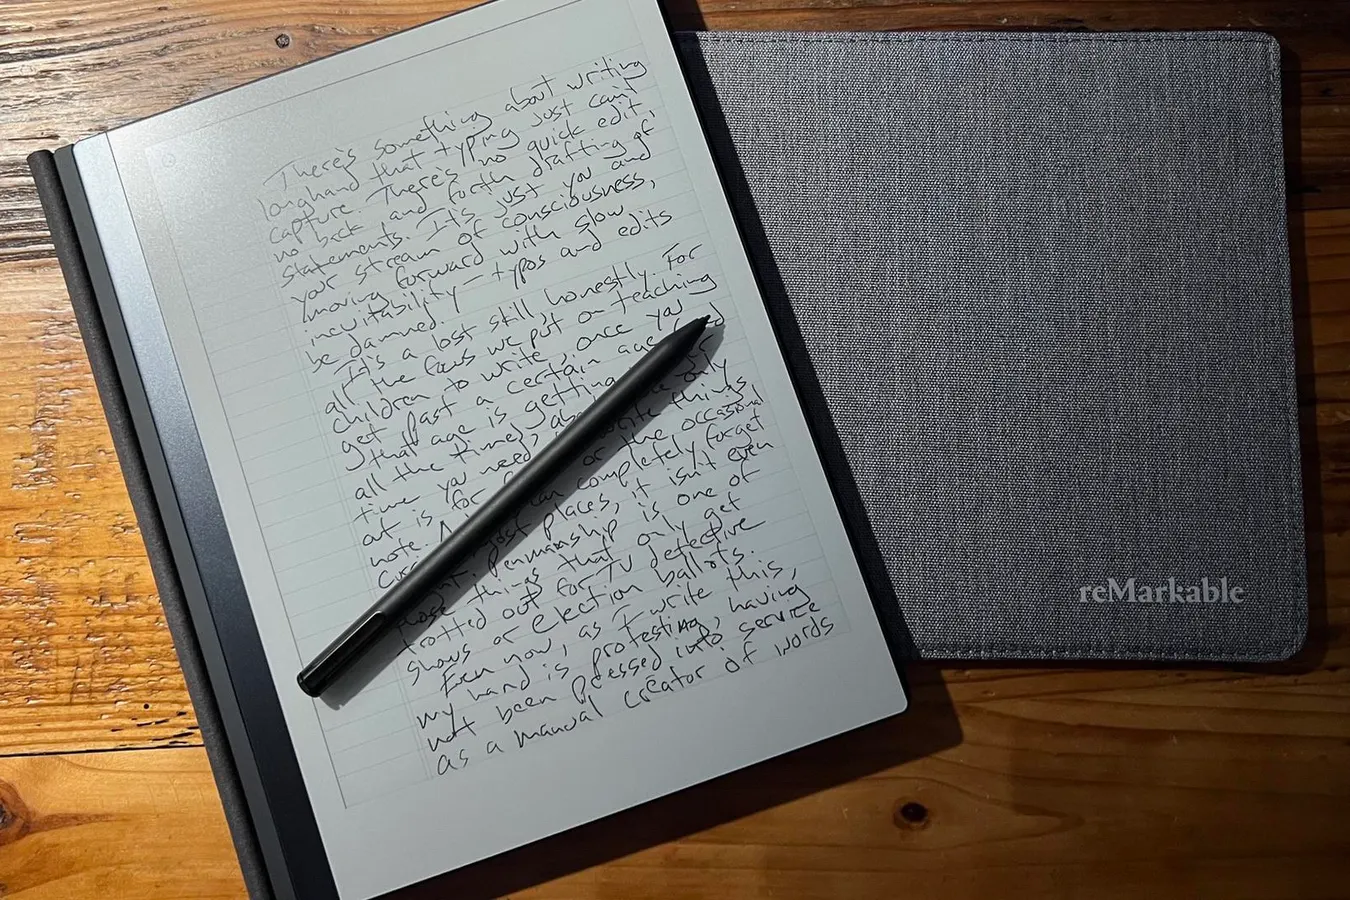 There's something about writing
longhand that typing just can't
capture. There's no quick edit,
no back and forth drafting of
statements. It's just you and
your stream of consciousness,
moving forward with slow
inevitability – typos and edits
be damned.
It's a lost still, honestly. For
all the focus we put on teaching
children to write, once you
get past a certain age (and
that age is getting
all the time),
time you need write things
out is for or the occasional
note. can completely forget
most places, it isn't even
penmanship is one of
those things that only get
trotted out for TV detective
shows or election ballots.
Even now, as I write this,
my hand is protesting, having
not been pressed into service
as a manual creator of words
reMarkable